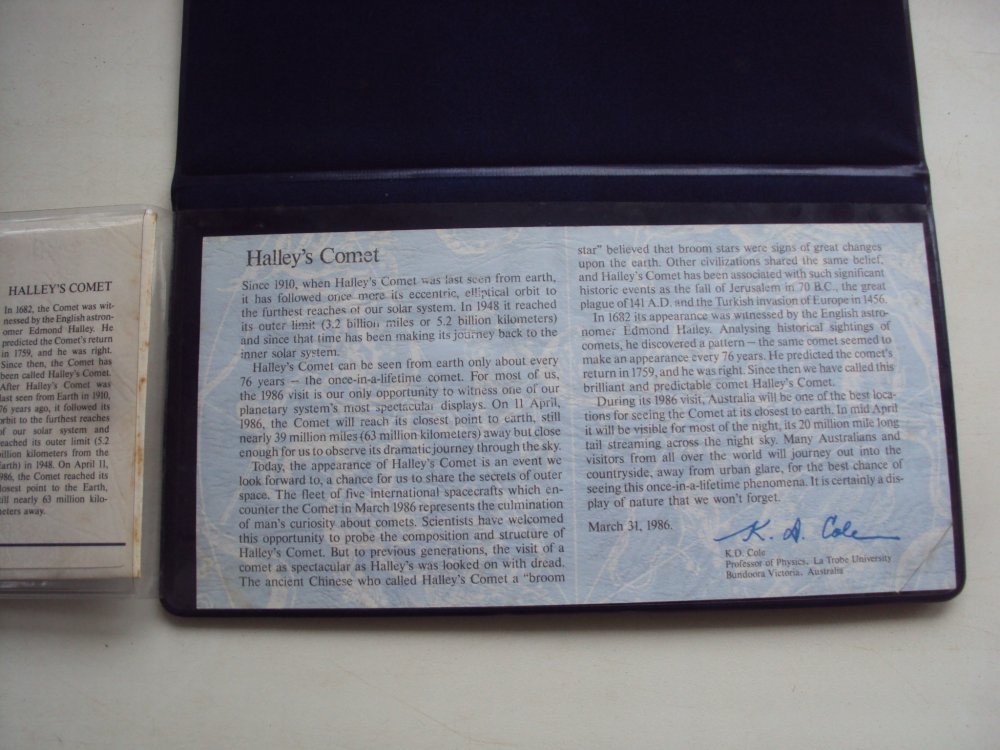 HALLEY'S COMET
In 1682, the Comet was wit-
nessed by the English astron-
omer Edmond Halley. He
predicted the Comet's return
in 1759, and he was right.
Since then, the Comet has
been called Halley's Comet.
After Halley's Comet was
last seen from Earth in 1910,
76 years ago, it followed its
orbit to the furthest reaches
of our solar system and
reached its outer limit (5.2
billion kilometers from the
Earth) in 1948. On April 11,
1986, the Comet reached its
closest point to the Earth,
still nearly 63 million kilo-
meters away.
Halley's Comet
Since 1910, when Halley's Comet was last seen from earth,
it has followed once more its eccentric, elliptical orbit to
the furthest reaches of our solar system. In 1948 it reached
its outer limit (3.2 billion miles or 5.2 billion kilometers)
and since that time has been making its journey back to the
inner solar system.
Halley's Comet can be seen from earth only about every
76 years — the once-in-a-lifetime comet. For most of us,
the 1986 visit is our only opportunity to witness one of our
planetary system's most spectacular displays. On 11 April,
1986, the Comet will reach its closest point to earth, still
nearly 39 million miles (63 million kilometers) away but close
enough for us to observe its dramatic journey through the sky.
Today, the appearance of Halley's Comet is an event we
look forward to, a chance for us to share the secrets of outer
space. The fleet of five international spacecrafts which en-
counter the Comet in March 1986 represents the culmination
of man's curiosity about comets. Scientists have welcomed
this opportunity to probe the composition and structure of
Halley's Comet. But to previous generations, the visit of a
comet as spectacular as Halley's was looked on with dread.
The ancient Chinese who called Halley's Comet a "broom
star" believed that broom stars were signs of great changes
upon the earth. Other civilizations shared the same belief,
and Halley's Comet has been associated with such significant
historic events as the fall of Jerusalem in 70 B.C., the great
plague of 141 A.D. and the Turkish invasion of Europe in 1456.
In 1682 its appearance was witnessed by the English astro-
nomer Edmond Halley. Analysing historical sightings of
comets, he discovered a pattern — the same comet seemed to
make an appearance every 76 years. He predicted the comet's
return in 1759, and he was right. Since then we have called this
brilliant and predictable comet Halley's Comet.
During its 1986 visit, Australia will be one of the best loca-
tions for seeing the Comet at its closest to earth. In mid April
it will be visible for most of the night, its 20 million mile long
tail streaming across the night sky. Many Australians and
visitors from all over the world will journey out into the
countryside, away from urban glare, for the best chance of
seeing this once-in-a-lifetime phenomena. It is certainly a dis-
play of nature that we won't forget.
March 31, 1986.
K. D. Cole
K.D. Cole
Professor of Physics, La Trobe University
Bundoora Victoria, Australia